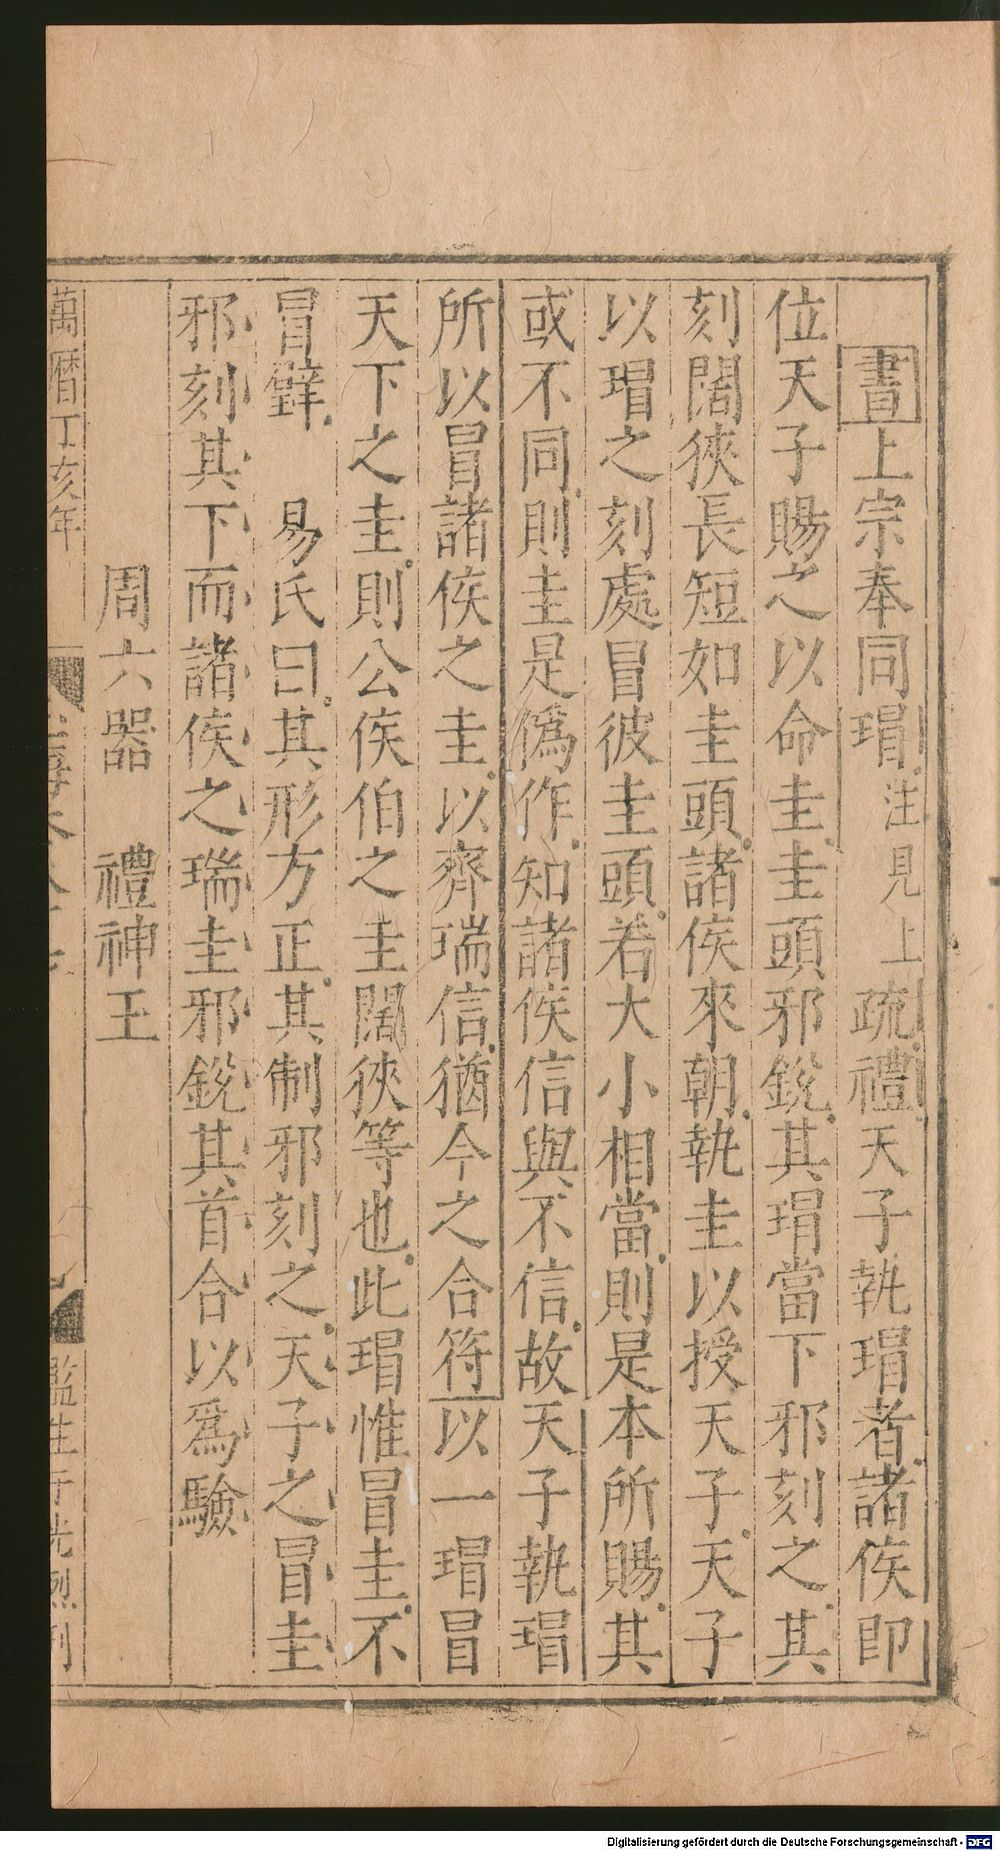 書上宗奉同瑁注見上疏禮天子執瑁者諸侯即
位天子賜之以命圭圭頭邪銳其瑁當下邪刻之其
刻闊狹長短如圭頭諸侯來朝執圭以授天子天子
以瑁之刻處冒彼圭頭若大小相當則是本所賜其
或不同則圭是僞作知諸侯信與不信故天子執瑁
所以冒諸侯之圭以齊瑞信猶今之合符以一瑁冒
天下之圭則公侯伯之圭闊狹等也此瑁惟冒圭不
冒璧 易氏曰其形方正其制邪刻之天子之冒圭
邪刻其下而諸侯之瑞圭邪銳其首合以爲驗
周六器 禮神玉
萬曆丁亥年
監生于光烈刊
Digitalisierung gefördert durch die Deutsche Forschungsgemeinschaft - DFG